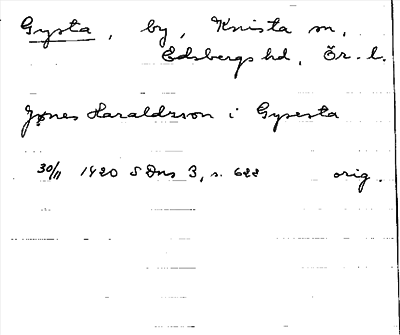 Gysta, by, Knista sn,
Edsbergs hd, Ör. l.
Jønes Haraldzson i Gysesta
30/11 1420 SDns 3, s. 622 orig.